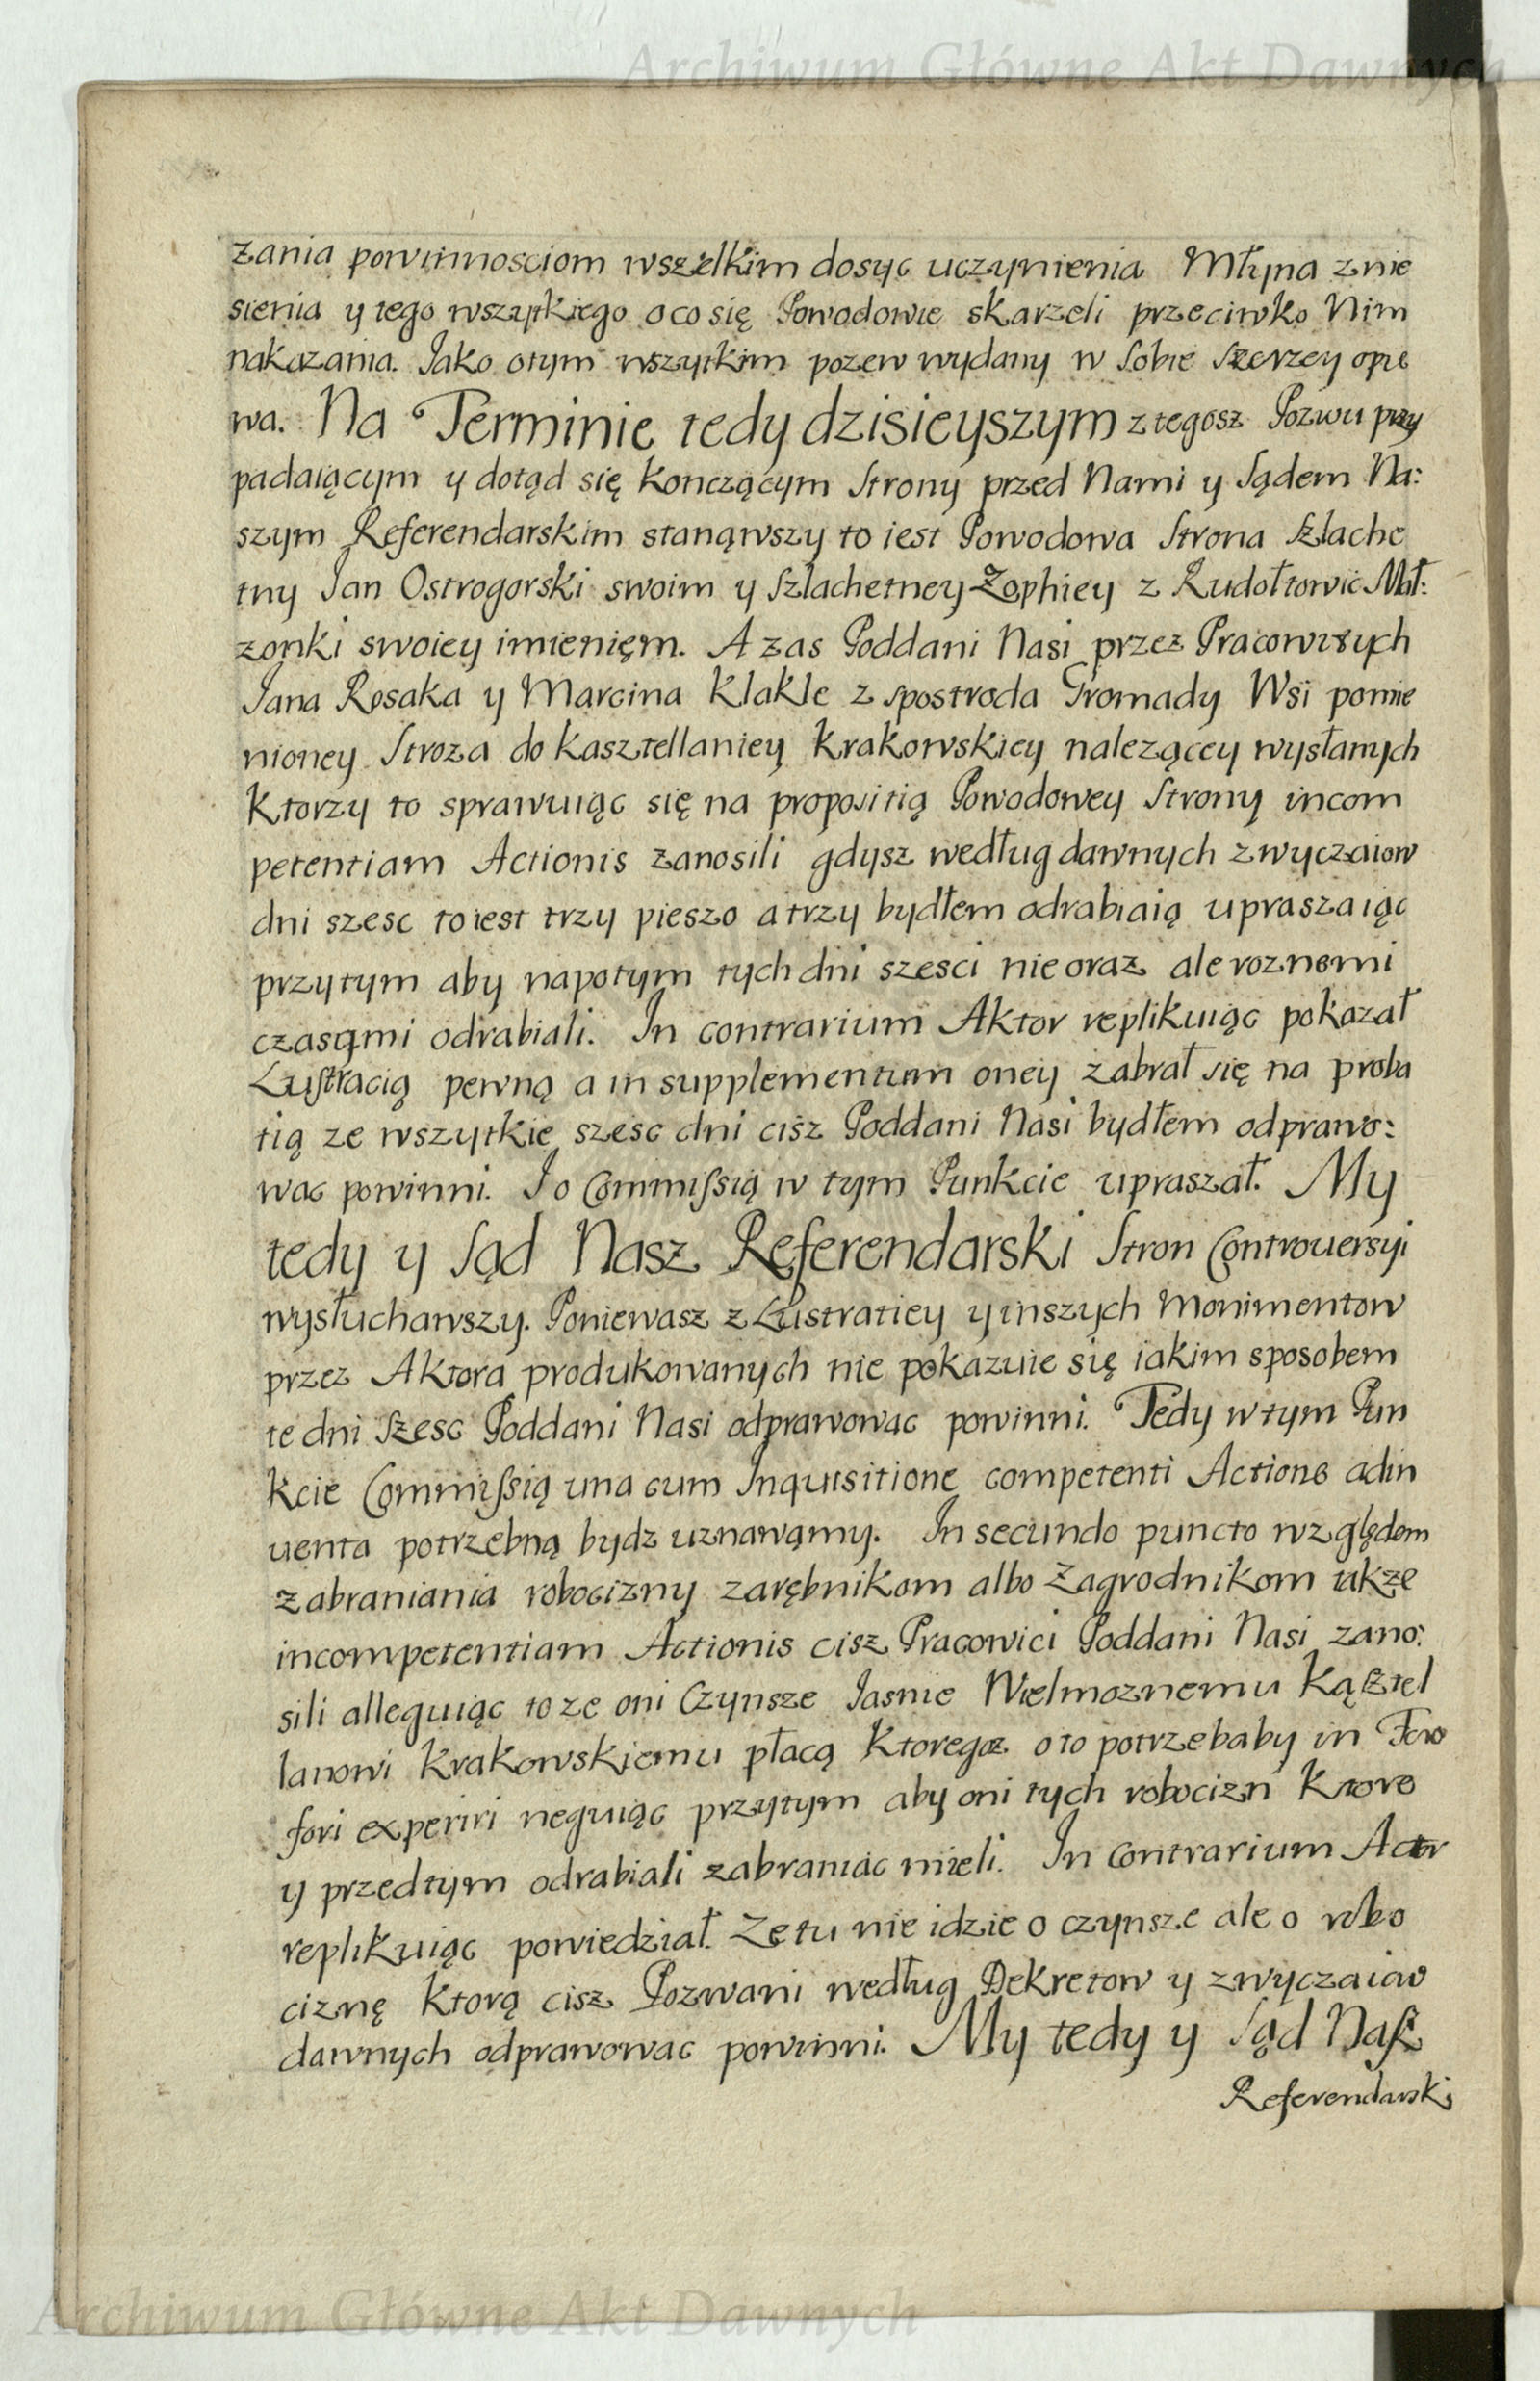 Archiwum Główne Akt Dawnych
zania powinnosciom wszelkim dosyc uczynienia Młyna znie
sienia y tego wszytkiego o co się Powodowie skarzeli przeciwko Nim
nakazania. Jako otym wszytkim pozew wydany w sobie szerzey opie
wa. Na Terminie tedy dzisieyszym z tegosz Pozwu przy
padaiącym y dotąd się konczącym Strony przed Nami y Sądem Na:
szym Referendarskim stanąwszy to iest Powodowa Strona Szlache
tny Jan Ostrogorski swoim y Szlachetney Zophiey z Rudołtowic Mał:
zonki swoiey imienięm. A zas Poddani Nasi przez Pracowitych
Jana Rosaka y Marcina Klakle z spostroda Gromady Wsi pomie
nioney Stroza do Kasztellaniey Krakowskiey nalezącey wysłanych
Ktorzy to sprawuiąc się na propositią Powodowey Strony incom
petentiam Actionis zanosili gdysz według dawnych zwyczaiow
dni szesc to iest trzy pieszo a trzy bydłem odrabiaią upraszaiąc
przytym aby napotym tych dni szesci nie oraz ale roznemi
czasami odrabiali. In contrarium Aktor replikuiąc pokazał
Lustracią pewną a in supplementum oney zabrał się na proba
tią ze wszytkie szesc dni cisz Poddani Nasi bydłem odprawo:
wac powinni. I o Commissią w tym Punkcie upraszał. My
tedy y Sąd Nasz Referendarski Stron Controuersyi
wysłuchawszy. Poniewasz z Lustratiey y inszych Monimentow
przez Aktora produkowanych nie pokazuie się iakim sposobem
te dni szesc Poddani Nasi odprawowac powinni. Tedy w tym Pun
kcie Commissią una cum Inquisitione competenti Actione adin
uenta potrzebną bydz uznawamy. In secundo puncto względem
zabraniania robocizny zarębnikom albo Zagrodnikom takze
incompetentiam Actionis cisz Pracowici Poddani Nasi zano:
sili alleguiąc to ze oni Czynsze Jasnie Wielmoznemu Kasztel
lanowi Krakowskiemu płacą Ktorego o to potrzebaby in Foro
fori experiri neguiąc przytym aby oni tych robocizn Ktore
y przedtym odrabiali zabraniac mieli. In Contrarium Actor
replikuiąc powiedział. Ze tu nie idzie o czynsze ale o robo
ciznę Ktorą cisz Pozwani według Dekretow y zwyczaiow
dawnych odprawowac powinni. My tedy y Sąd Nasz
Referendarski
Archiwum Główne Akt Dawnych